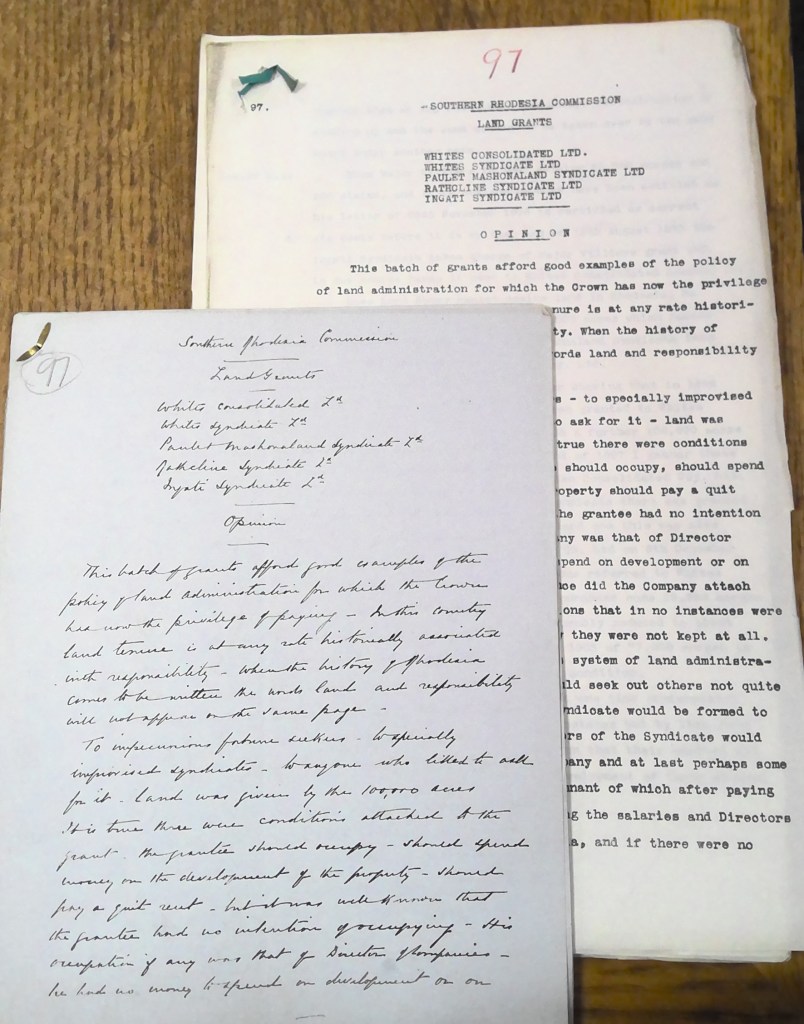 97
97.
SOUTHERN RHODESIA COMMISSION
LAND GRANTS
WHITES CONSOLIDATED LTD.
WHITES SYNDICATE LTD
PAULET MASHONALAND SYNDICATE LTD
RATHCLINE SYNDICATE LTD
INGATI SYNDICATE LTD
OPINION
This batch of grants afford good examples of the policy
of land administration for which the Crown has now the privilege
nure is at any rate histori-
ty. When the history of
ords land and responsibility
s - to specially improvised
o ask for it - land was
true there were conditions
should occupy, should spend
operty should pay a quit
he grantee had no intention
ny was that of Director
pend on development or on
ce did the Company attach
ons that in no instances were
they were not kept at all.
system of land administra-
ld seek out others not quite
ndicate would be formed to
rs of the Syndicate would
any and at last perhaps some
nant of which after paying
g the salaries and Directors
a, and if there were no
97
Southern Rhodesia Commission
Land Grants
Whites Consolidated Ld
Whites Syndicate Ld
Paulet Mashonaland Syndicate Ld
Rathcline Syndicate Ld
Ingati Syndicate Ld
Opinion
This batch of grants afford good examples of the
policy of land administration for which the Crown
has now the privilege of paying - In this country
land tenure is at any rate historically associated
with responsibility - When the history of Rhodesia
comes to be written the words land and responsibility
will not appear on the same page -
To impecunious fortune seekers - to specially
improvised syndicates - to anyone who liked to ask
for it - land was given by the 100,000 acres
It is true there were conditions attached to the
grant. the grantee should occupy - should spend
money on the development of the property - should
pay a quit rent - but it was well known that
the grantee had no intention of occupying - His
occupation if any was that of Director of Companies -
he had no money to spend on development or on